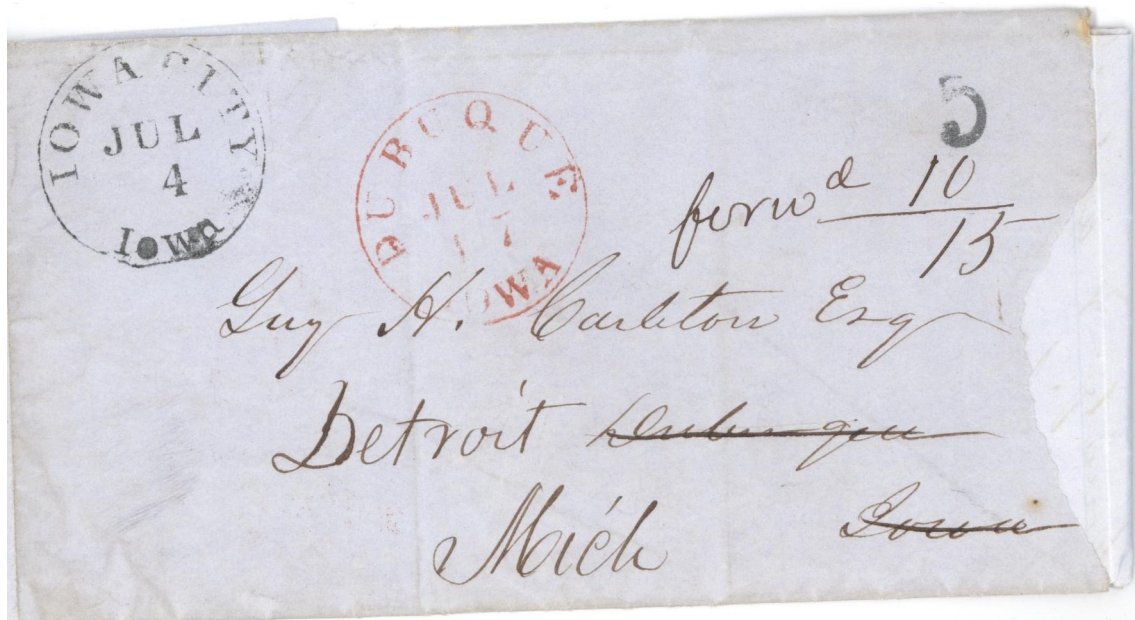 IOWA CITY
JUL
4
Iowa
DUBUQUE
JUL
17
IOWA
5
forwd 10
15
Guy H. Carleton Esq
Detroit Dubuque
Mich Iowa